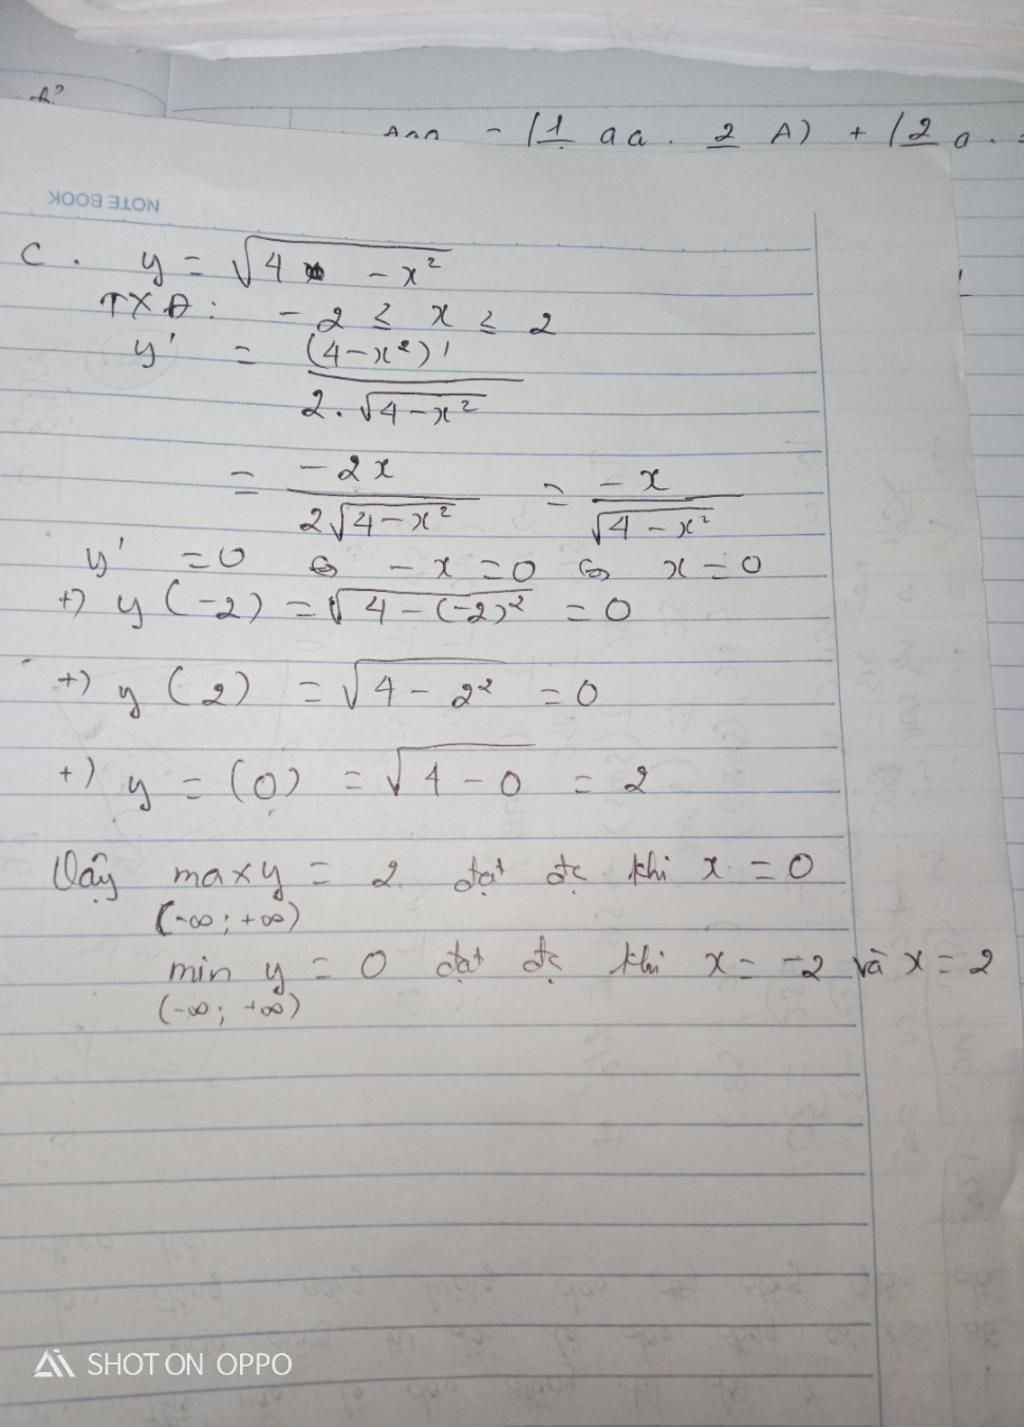 h?
Aaa = (1 aa . 2 A) + (2 a .
NOTE BOOK
C . y = √4 - x²
TXĐ : - 2 ≤ x ≤ 2
y' = (4-x²)' / 2.√4-x²
= -2x / 2√4-x² = -x / √4-x²
y' = 0 ⇔ - x = 0 ⇔ x = 0
+) y (-2) = √4-(-2)² = 0
+) y (2) = √4 - 2² = 0
+) y = (0) = √4 - 0 = 2
Vậy max y = 2 đạt đc khi x = 0
(-∞; +∞)
min y = 0 đạt đc khi x = -2 và x = 2
(-∞; +∞)
SHOT ON OPPO